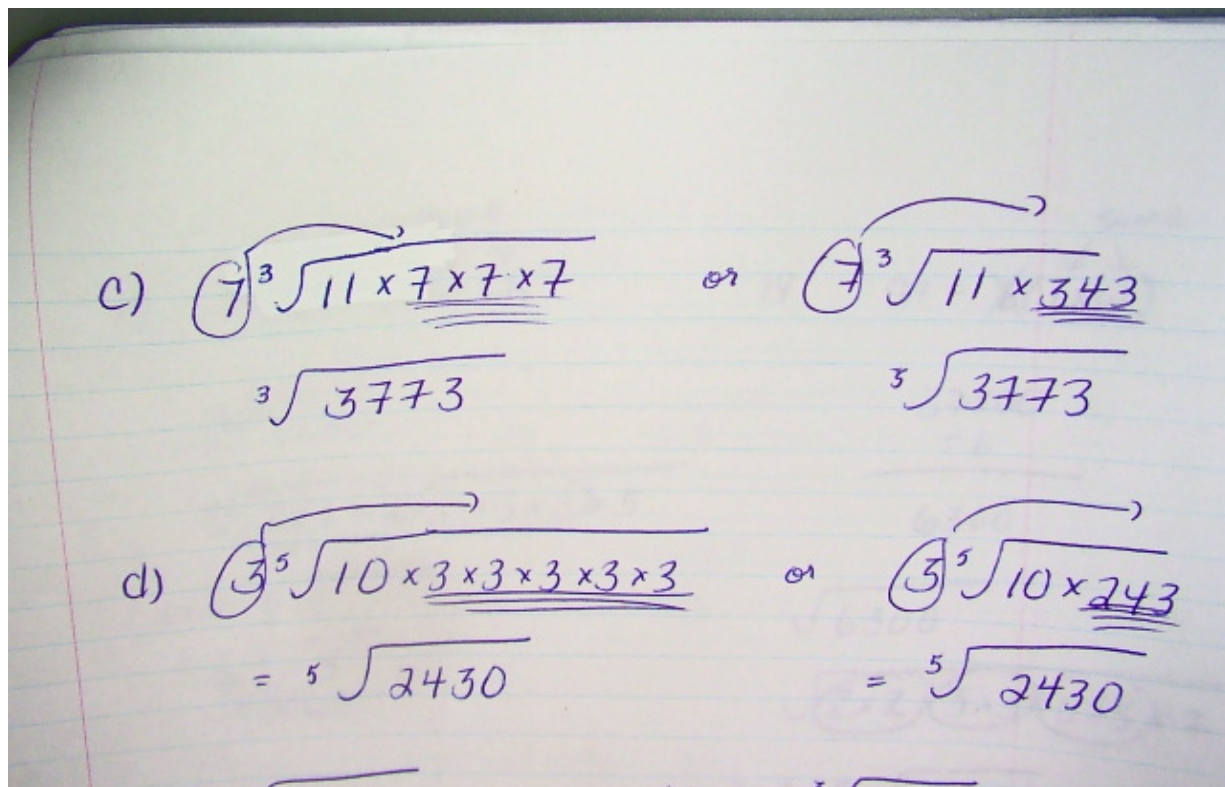 c) 7 ³√11 × 7 × 7 × 7 or 7 ³√11 × 343
³√3773 ³√3773
d) 3 ⁵√10 × 3 × 3 × 3 × 3 × 3 or 3 ⁵√10 × 243
= ⁵√2430 = ⁵√2430